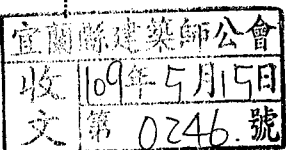 宜蘭縣建築師公會
收文
109年5月15日
第 0246 號